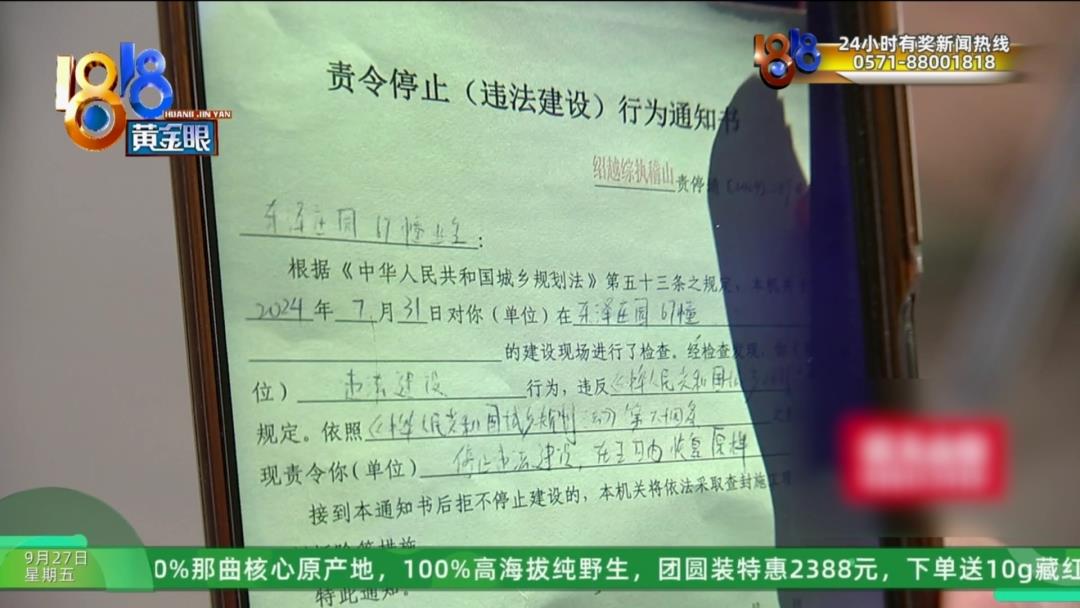 1818
HUANG JIN YAN
黄金眼
1818
24小时有奖新闻热线
0571-88001818
责令停止（违法建设）行为通知书
绍越综执稽山责停通
东泽庄园 67幢业主：
根据《中华人民共和国城乡规划法》第五十三条之规定，本机关于
2024年7月31日对你（单位）在东泽庄园67幢
的建设现场进行了检查。经检查发现，你（
位）违法建设行为，违反《中华人民共和国城乡
规定。依照《中华人民共和国城乡规划法》第六十四条之
现责令你（单位）停止违法建设，在三日内恢复原样
接到本通知书后拒不停止建设的，本机关将依法采取查封施工现
特此通知。
9月27日
星期五
0%那曲核心原产地，100%高海拔纯野生，团圆装特惠2388元，下单送10g藏红